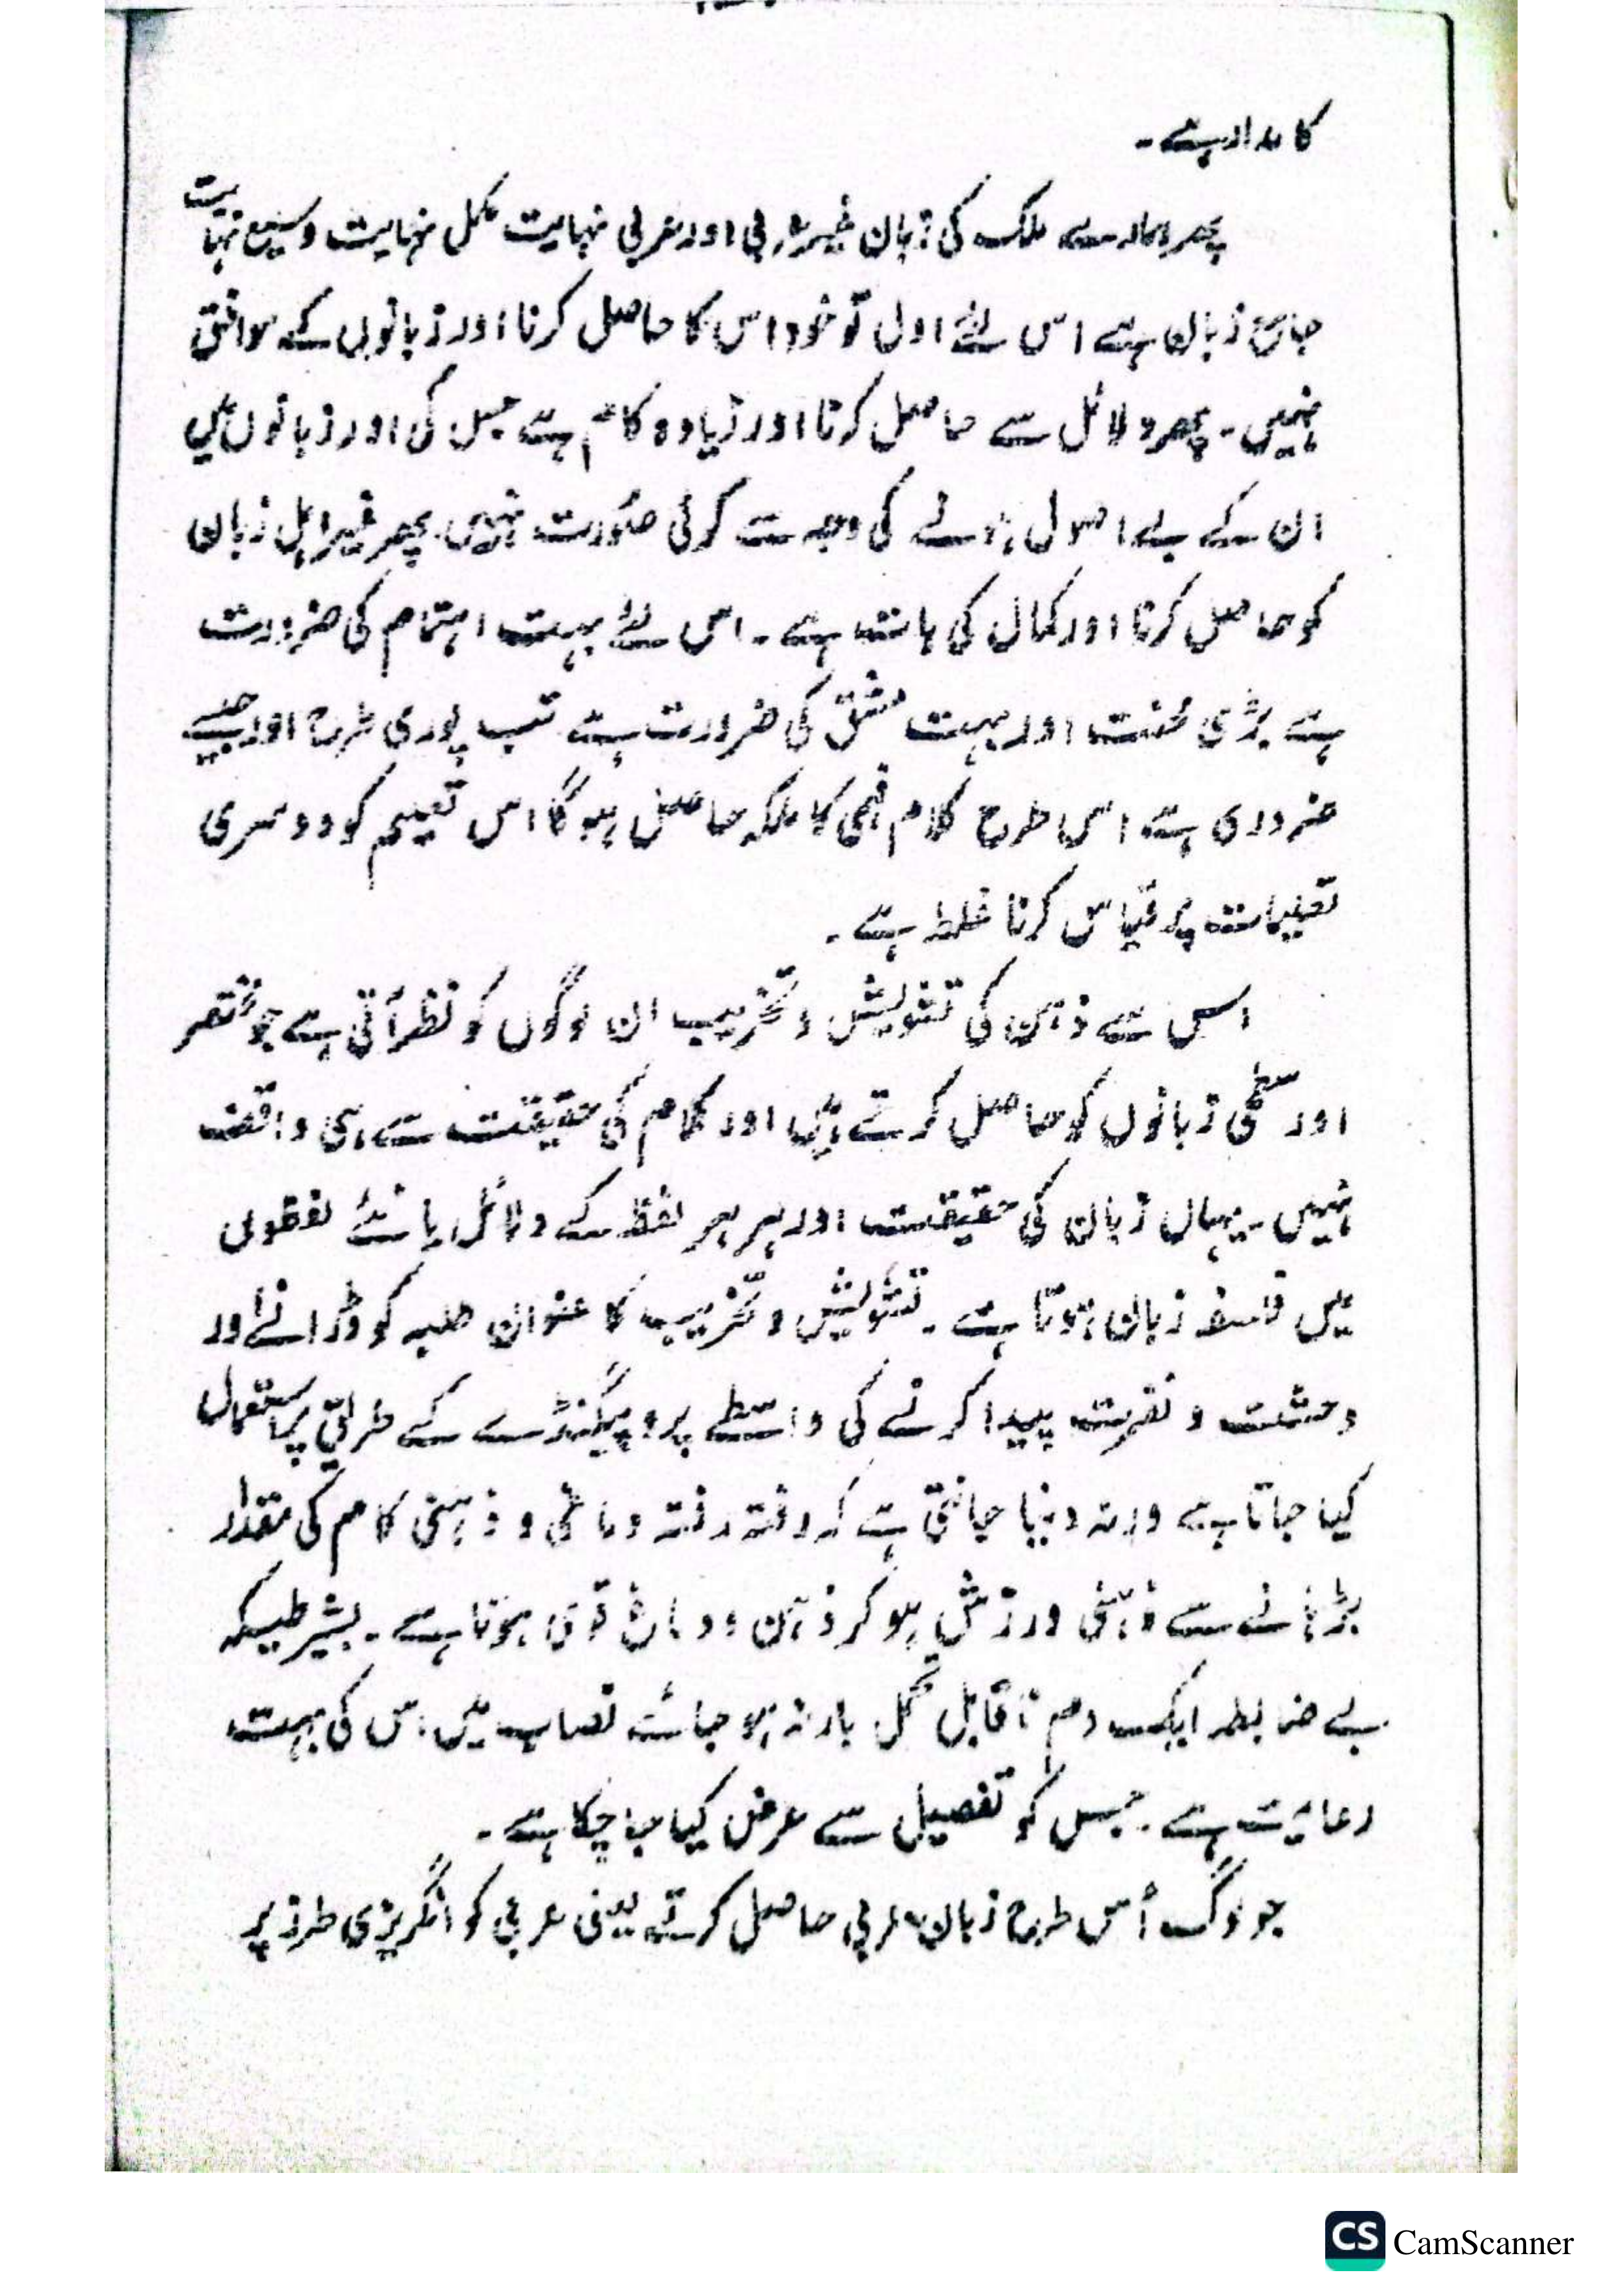 کا مدار ہے۔
پھر ہمارے ملک کی زبان غیر عربی اور عربی نہایت مکمل نہایت وسیع نہایت
جامع زبان ہے اس لئے اول تو خود اس کا حاصل کرنا اور زبانوں کے موافق
نہیں۔ پھر دلائل سے حاصل کرنا اور زیادہ کام ہے جس کی اور زبانوں میں
ان کے بے اصول ہونے کی وجہ سے کوئی صورت نہیں۔ پھر غیر اہل زبان
کو حاصل کرنا اور کمال کی بات ہے۔ اس لئے بہت اہتمام کی ضرورت
ہے بڑی محنت اور بہت مشق کی ضرورت ہے تب پوری طرح اور جیسے
ضروری ہے اس طرح کلام فہمی کا ملکہ حاصل ہوگا اس تعلیم کو دوسری
تعلیمات پر قیاس کرنا غلط ہے۔
اس سے ذہن کی تشویش و تخریب ان لوگوں کو نظر آتی ہے جو مختصر
اور سطحی زبانوں کو حاصل کرتے ہیں اور کلام کی حقیقت سے ہی واقف
نہیں۔ یہاں زبان کی حقیقت اور ہر ہر لفظ کے دلائل یا نئے لفظوں
میں فلسفہ زبان ہوتا ہے۔ تشویش و تخریب کا عنوان طلبہ کو ڈرانے اور
وحشت و نفرت پیدا کرنے کی واسطے پروپیگنڈے کے طریق پر استعمال
کیا جاتا ہے ورنہ دنیا جانتی ہے کہ رفتہ رفتہ دماغی و ذہنی کام کی مقدار
بڑھانے سے ذہنی ورزش ہو کر ذہن و دماغ قوی ہوتا ہے۔ بشرطیکہ
بے ضابطہ ایک دم ناقابل تحمل بار نہ ہو جائے نصاب میں اس کی بہت
رعایت ہے۔ جس کو تفصیل سے عرض کیا جا چکا ہے۔
جو لوگ اس طرح زبان عربی حاصل کرتے یعنی عربی کو انگریزی طرز پر
CS CamScanner